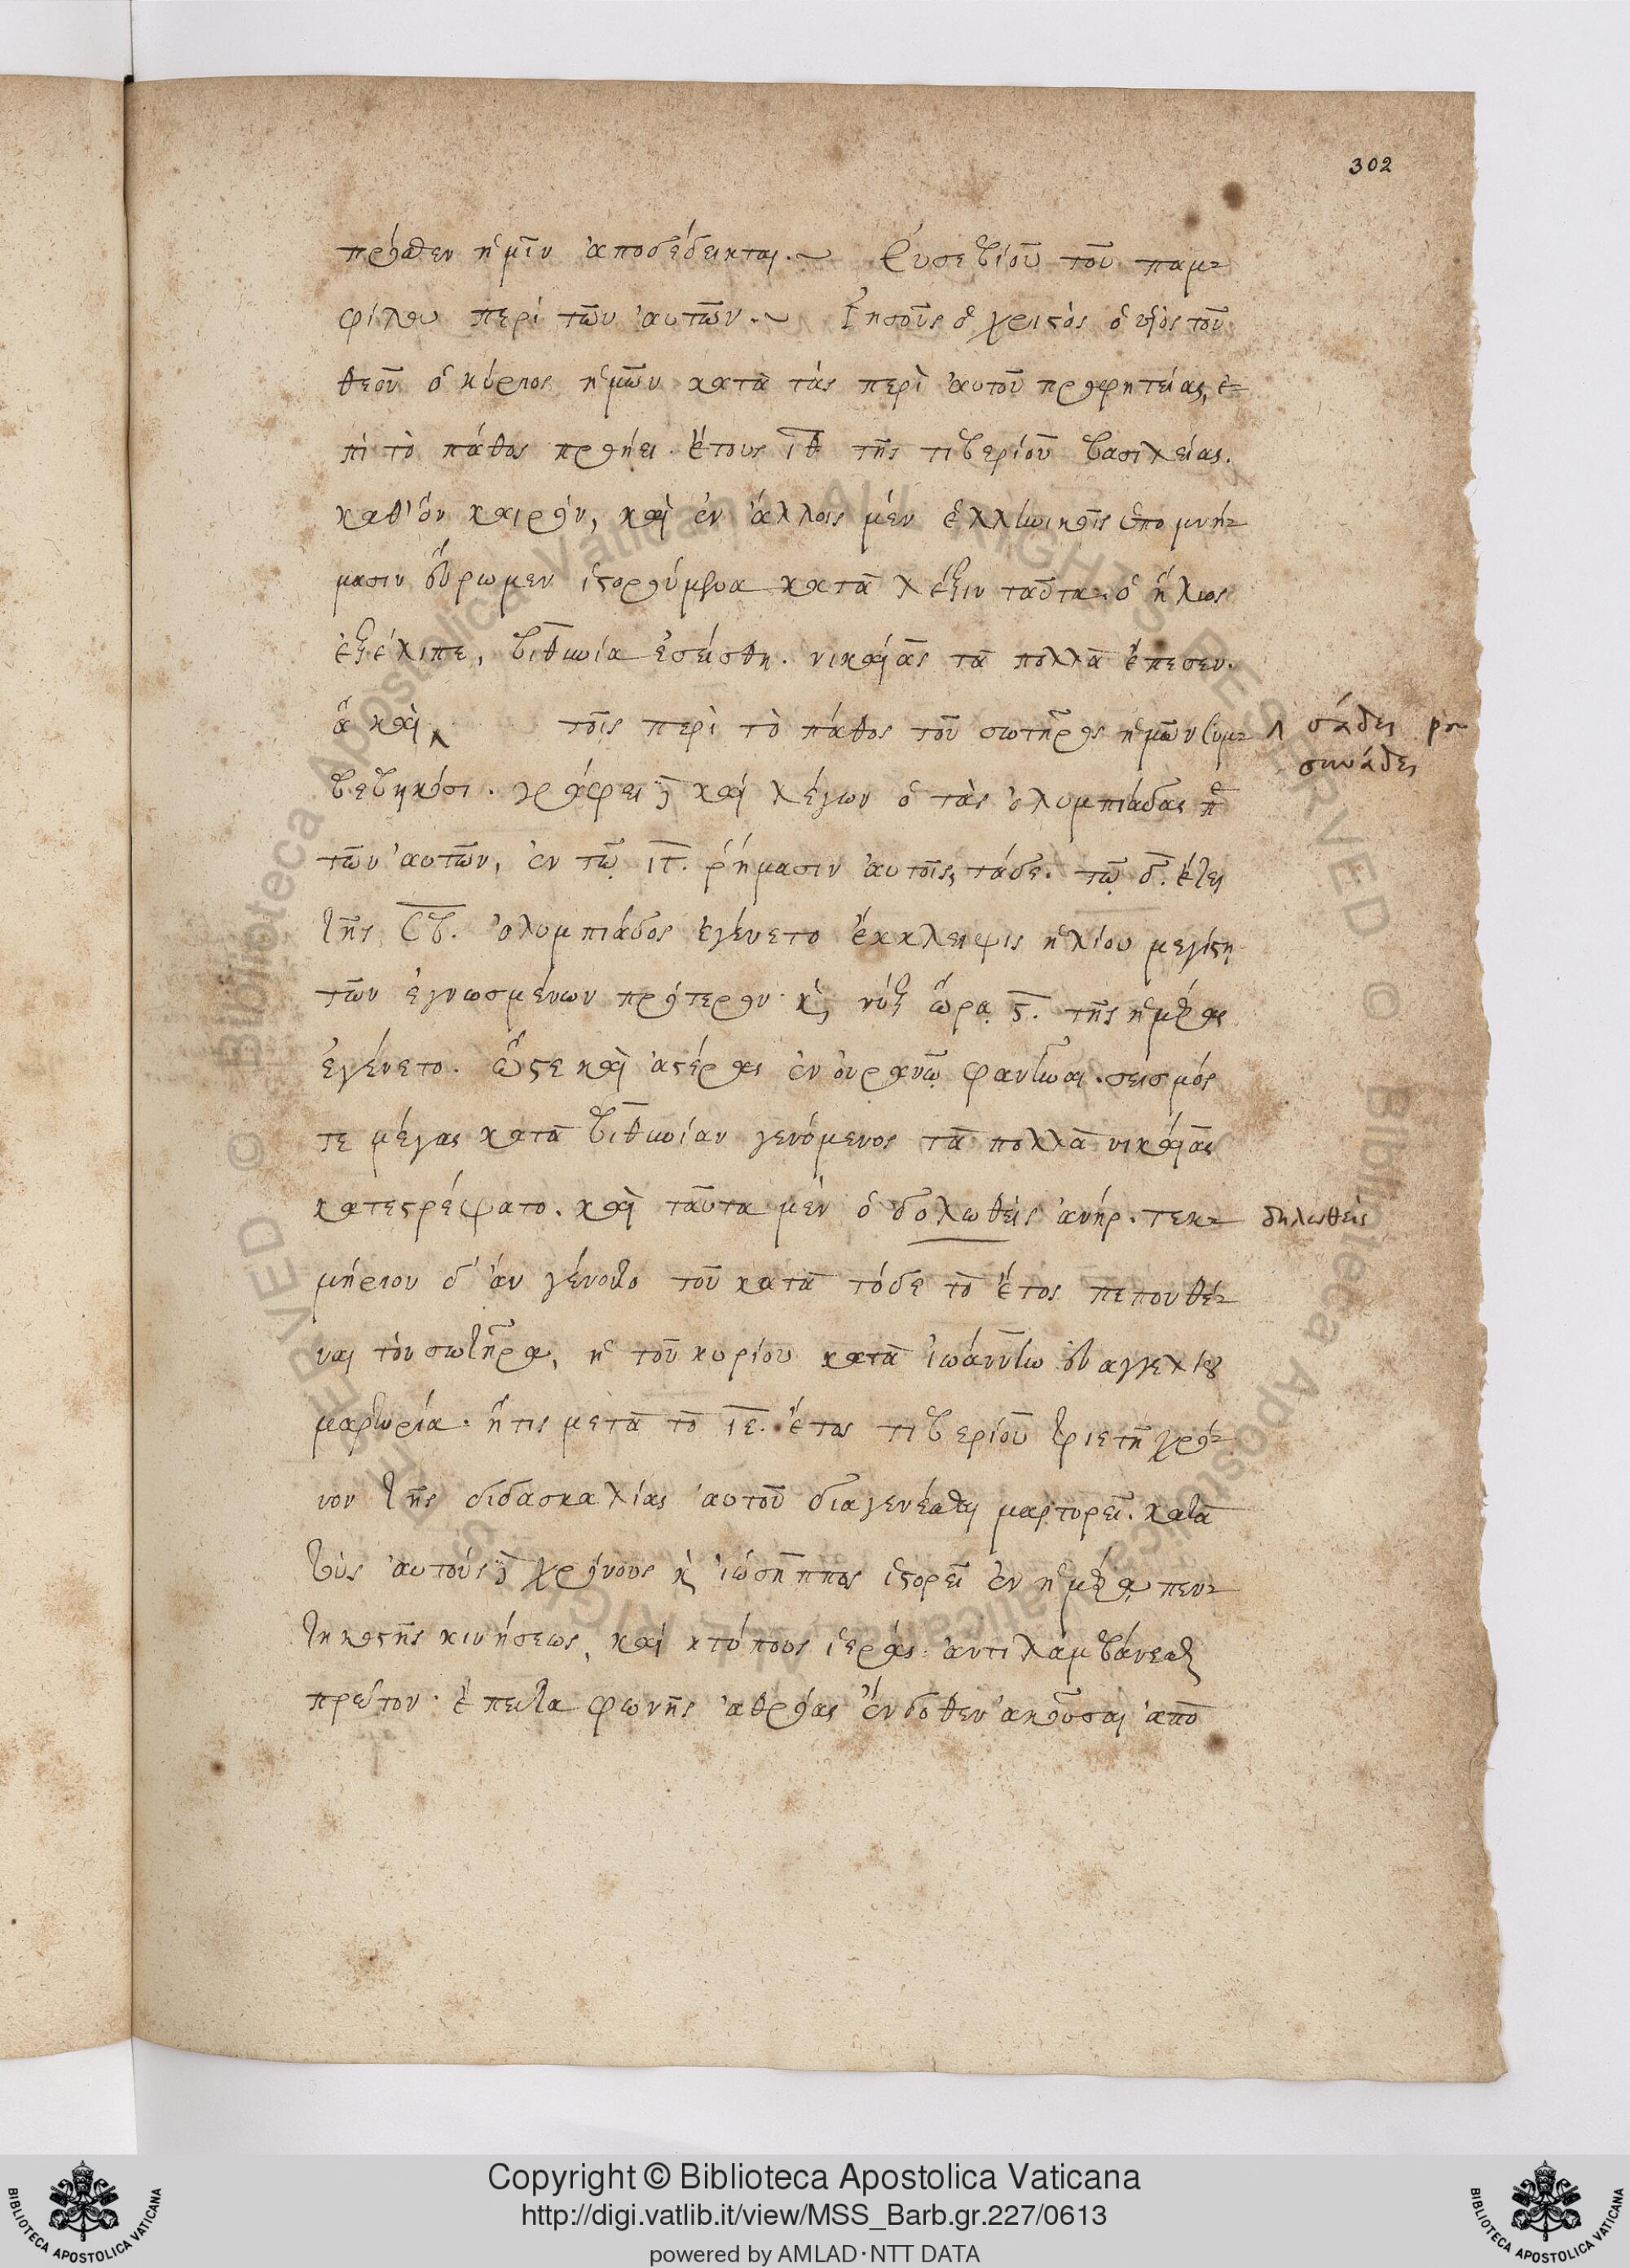 302
πρόσθεν ἡμῖν ἀποδέδεικται.~ Εὐσεβίου τοῦ παμ-
φίλου περὶ τῶν αὐτῶν.~ Ἰησοῦς ὁ χριστὸς ὁ υἱὸς τοῦ
θεοῦ ὁ κύριος ἡμῶν κατὰ τὰς περὶ αὐτοῦ προφητείας, ἐ-
πὶ τὸ πάθος προήει. ἔτους ιθ τῆς τιβερίου βασιλείας.
καθ' ὃν καιρὸν, καὶ ἐν ἄλλοις μὲν ἑλληνικοῖς ὑπομνή-
μασιν εὕρωμεν ἱστορούμενα κατὰ λέξιν ταῦτα. ὁ ἥλιος
ἐξέλιπε, βιθυνία ἐσείσθη. νικαίας τὰ πολλὰ ἔπεσεν.
ἃ καὶ ʌ τοῖς περὶ τὸ πάθος τοῦ σωτῆρος ἡμῶν συμ-
ʌ σάδει
συνάδει
βεβηκόσι. γράφει δὲ καὶ λέγων ὁ τὰς ὀλυμπιάδας
τῶν αὐτῶν, ἐν τῷ ιγ. ῥήμασιν αὐτοῖς τάδε. τῷ δ. ἔτει
τῆς σβ. ὀλυμπιάδος ἐγένετο ἔκκλειψις ἡλίου μεγίστη
τῶν ἐγνωσμένων πρότερον. καὶ νὺξ ὥρᾳ ϛ. τῆς ἡμέρας
ἐγένετο. ὥστε καὶ ἀστέρας ἐν οὐρανῷ φανῆναι. σεισμός
τε μέγας κατὰ βιθυνίαν γενόμενος τὰ πολλὰ νικαίας
κατεστρέψατο. καὶ ταῦτα μὲν ὁ δολωθεὶς ἀνήρ. τεκ-
δηλωθεὶς
μήριον δ' ἂν γένοιτο τοῦ κατὰ τόδε τὸ ἔτος πεπονθέ-
ναι τὸν σωτῆρα, ἡ τοῦ κυρίου κατὰ ἰωάννην εὐαγγελίου
μαρτυρία. ἥτις μετὰ τὸ ιε. ἔτος τιβερίου τριετῆ χρό-
νον τῆς διδασκαλίας αὐτοῦ διαγενέσθαι μαρτυρεῖ. κατὰ
τοὺς αὐτοὺς δὲ χρόνους καὶ ἰώσηππος ἱστορεῖ ἐν ἡμέρᾳ πεν-
τηκοστῆς κινήσεως, καὶ κτύπους ἱεράς. ἀντιλαμβάνεσθαι
πρῶτον. ἔπειτα φωνῆς ἀθρόας ἔνδοθεν ἀκοῦσαι ἀπὸ
Copyright © Biblioteca Apostolica Vaticana
http://digi.vatlib.it/view/MSS_Barb.gr.227/0613
powered by AMLAD·NTT DATA
BIBLIOTECA APOSTOLICA VATICANA
BIBLIOTECA APOSTOLICA VATICANA